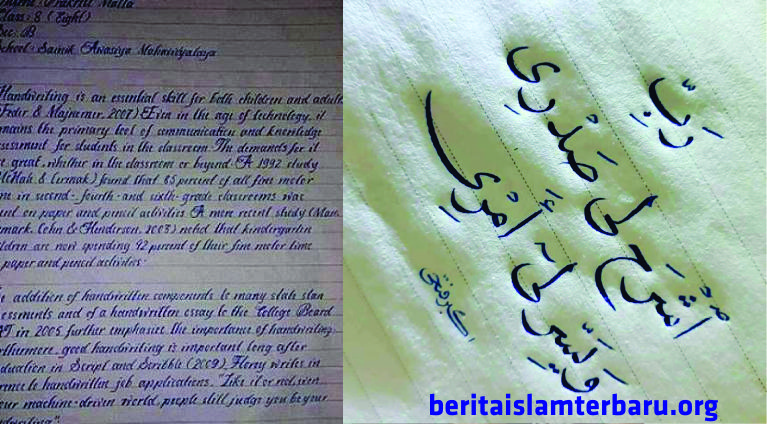 Prakriti Malla
Class: 8 (Eight)
Sec: B
School: Sainik Awasiya Mahavidyalaya
Handwriting is an essential skill for both children and adult
(Feder & Majnemer, 2007) Even in the age of technology, it
mains the primary tool of communication and knowledge
sessment for students in the classroom The demands for it
great, whether in the classroom or beyond A 1992 study
McHale & Cermak) found that 85 percent of all fine motor
me in second- fourth- and sixth- grade classrooms was
ent on paper and pencil activities A more recent study (Marr,
rmark, Cohn & Henderson, 2003) noted that kindergarten
ldren are now spending 42 percent of their fine motor time
paper and pencil activities.
e addition of handwritten components to many state stan
essments and of a handwritten essay to the College Board
AT in 2005 further emphasize the importance of handwriting
rthermore, good handwriting is important long after
duation in Script and Scribble (2009), Florey writes in
rence to handwritten job applications, "Like it or not, even
our machine-driven world, people still judge you by your
ndwriting".
رَبِّ
اشْرَحْ لِي صَدْرِي
وَيَسِّرْ لِي أَمْرِي
beritaislamterbaru.org